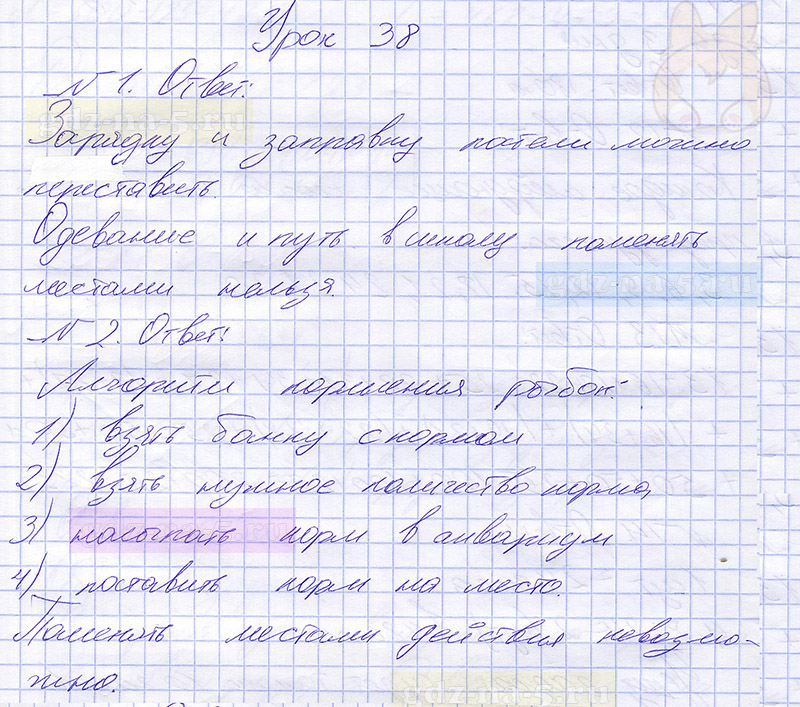 Урок 38
N 1. Ответ:
Зарядку и заправку постели можно
переставить.
Одевание и путь в школу поменять
местами нельзя.
N 2. Ответ:
Алгоритм кормления рыбок:
1) взять банку с кормом
2) взять нужное количество корма,
3) насыпать корм в аквариум
4) поставить корм на место.
Поменять местами действия невозмо-
жно.
gdz-na-5.ru